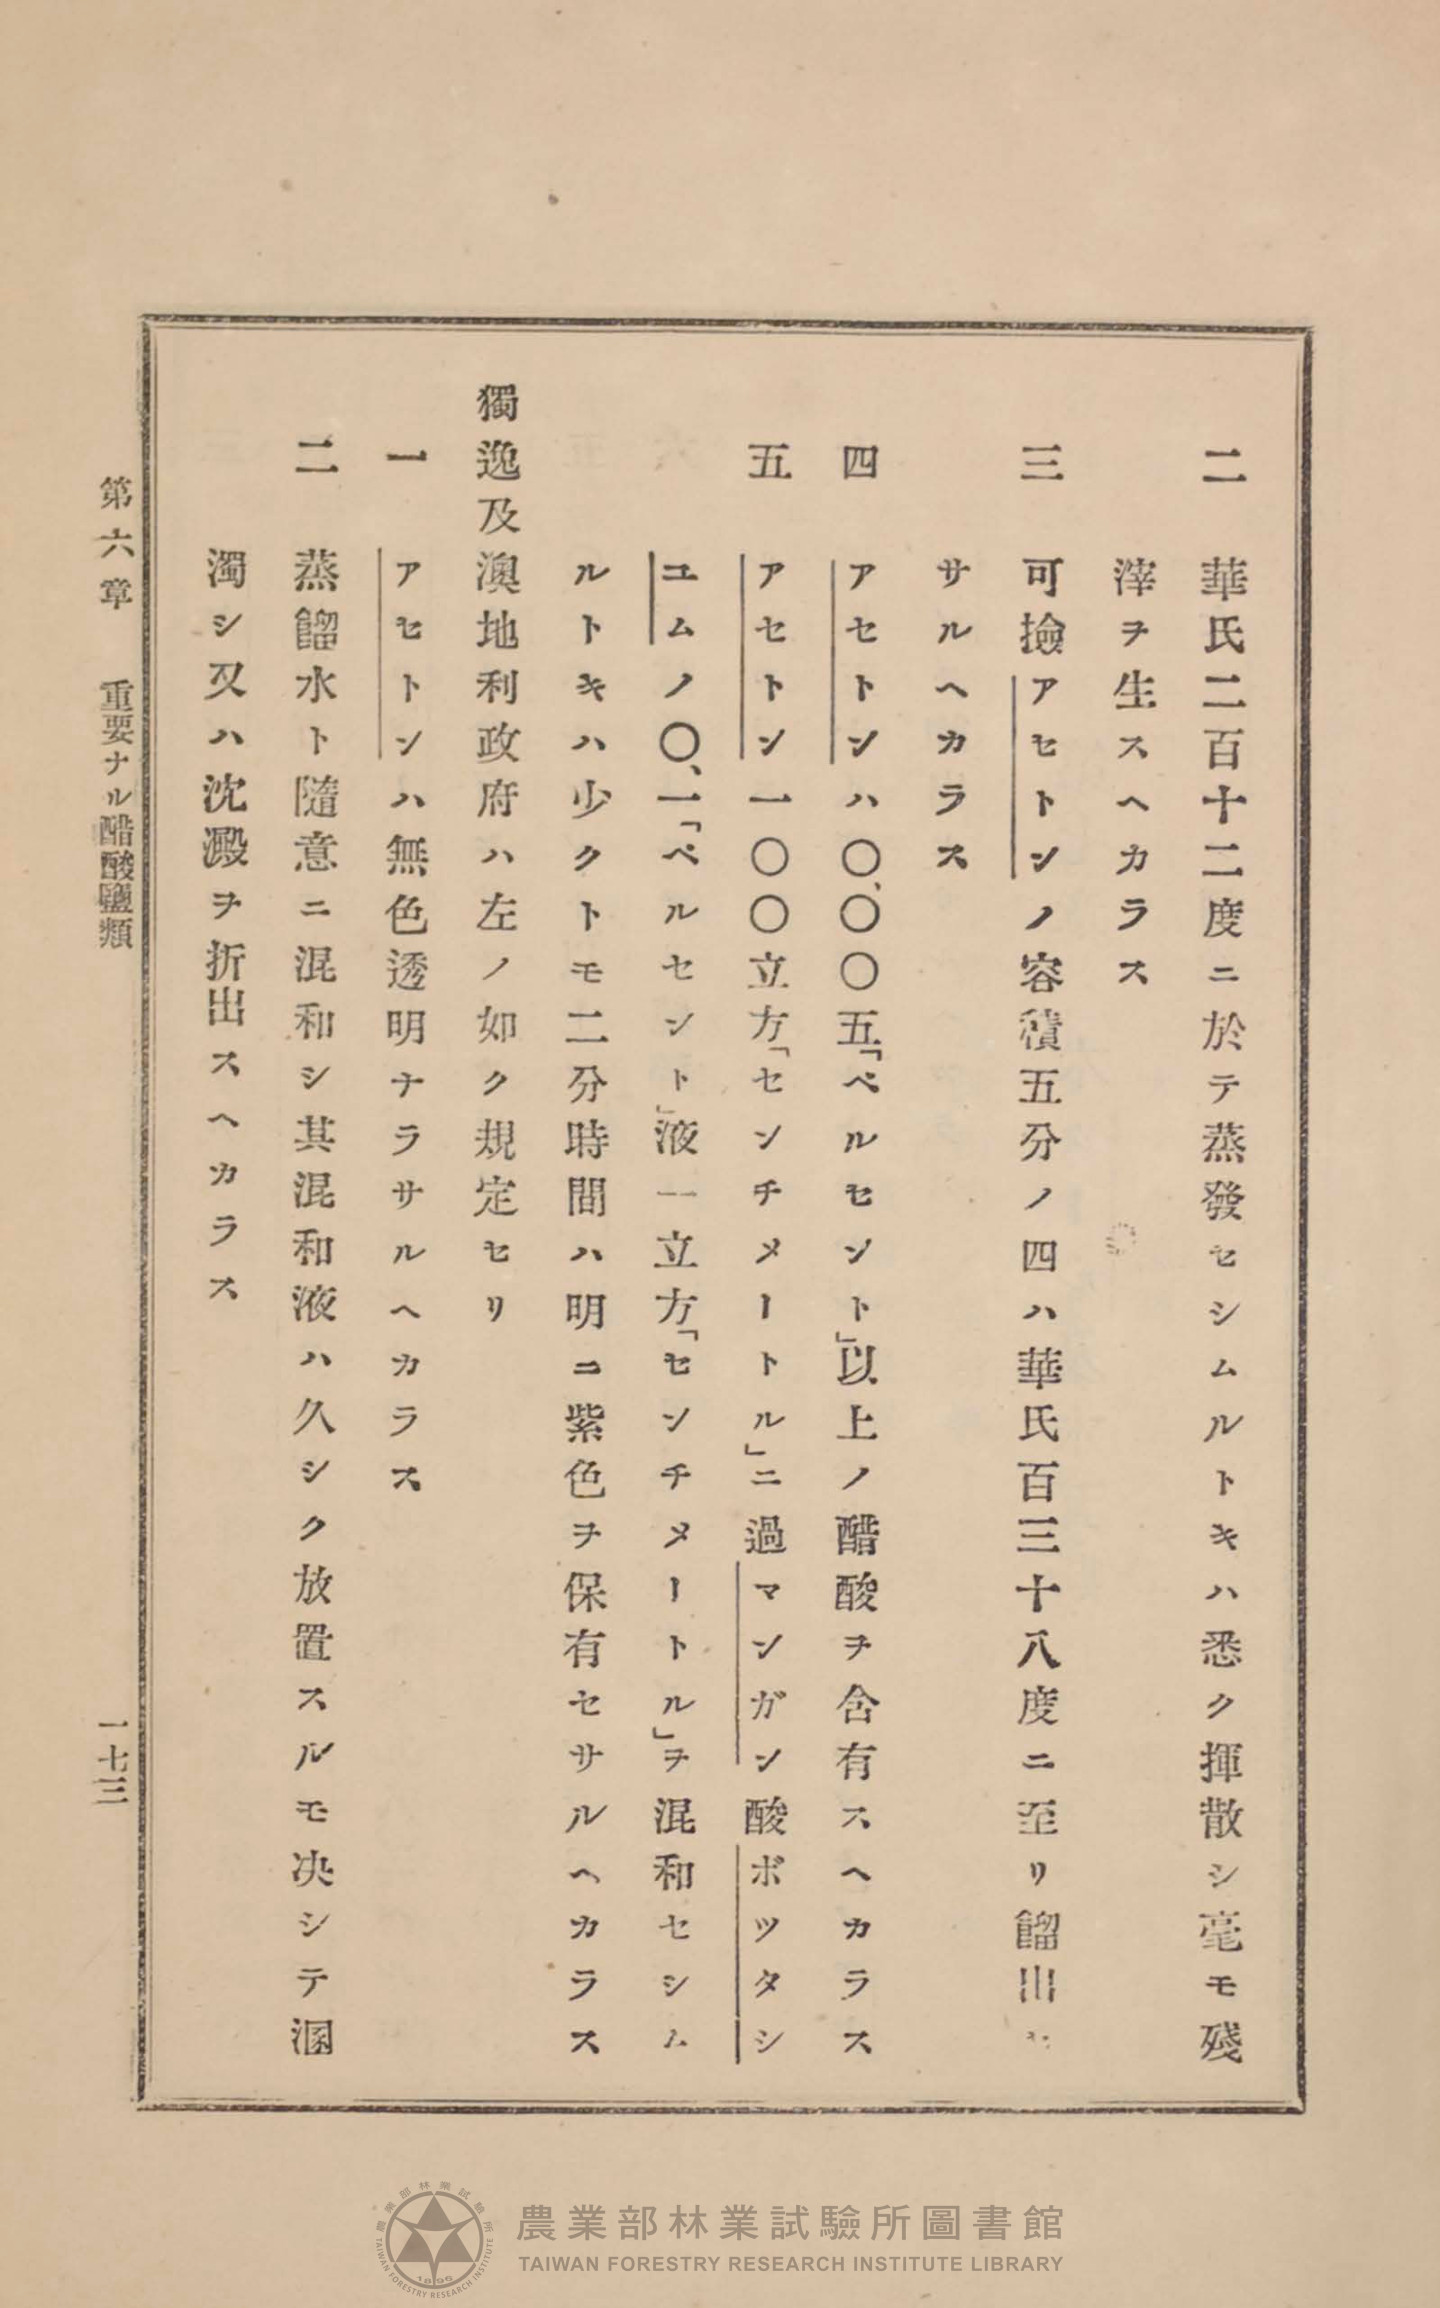 二　華氏二百十二度ニ於テ蒸發セシムルトキハ悉ク揮散シ毫モ殘
滓ヲ生スヘカラス
三　可撿アセトンノ容積五分ノ四ハ華氏百三十八度ニ至リ餾出セ
サルヘカラス
四　アセトンハ〇、〇〇五「ペルセント」以上ノ醋酸ヲ含有スヘカラス
五　アセトン一〇〇立方「センチメートル」ニ過マンガン酸ポツタシ
ユムノ〇、一「ペルセント」液一立方「センチメートル」ヲ混和セシム
ルトキハ少クトモ二分時間ハ明ニ紫色ヲ保有セサルヘカラス
獨逸及澳地利政府ハ左ノ如ク規定セリ
一　アセトンハ無色透明ナラサルヘカラス
二　蒸餾水ト隨意ニ混和シ其混和液ハ久シク放置スルモ决シテ溷
濁シ又ハ沈澱ヲ折出スヘカラス
第六章　重要ナル醋酸鹽類
一七三
農業部林業試驗所圖書館
TAIWAN FORESTRY RESEARCH INSTITUTE LIBRARY
農業部林業試驗所
TAIWAN FORESTRY RESEARCH INSTITUTE
1896